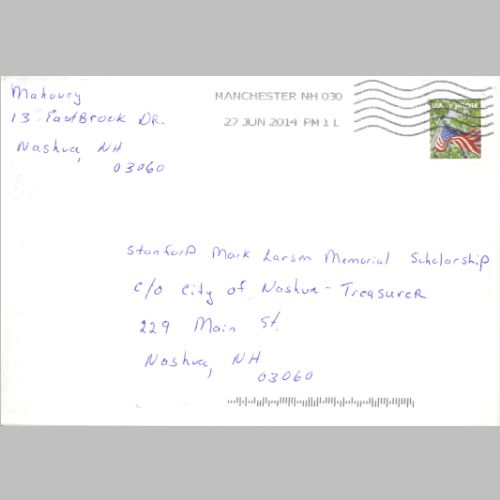 Mahoney
13 EastBrook DR.
Nashua, NH
03060
MANCHESTER NH 030
27 JUN 2014 PM 1 L
USA FOREVER
Stanford Mark Larsen Memorial Scholarship
c/o City of Nashua - Treasurer
229 Main St.
Nashua, NH
03060